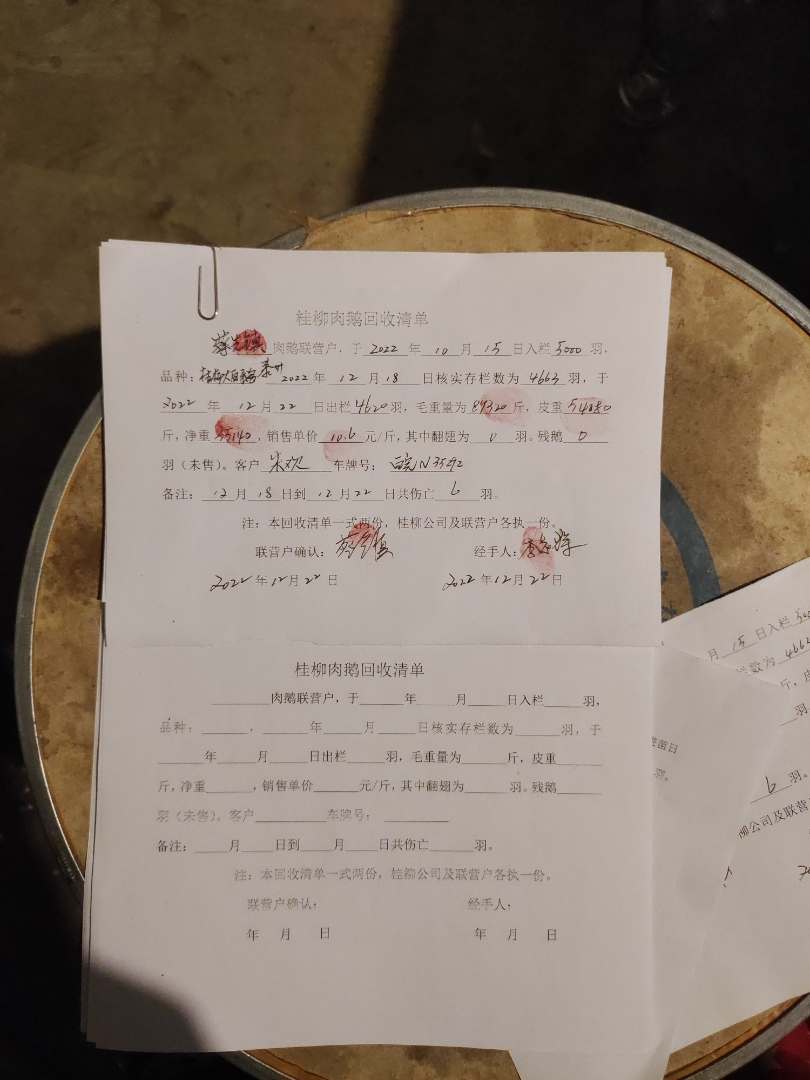 桂柳肉鹅回收清单
肉鹅联营户，于 2022 年 10 月 15 日入栏 5000 羽，
品种： 2022 年 12 月 18 日核实存栏数为 4663 羽，于
2022 年 12 月 22 日出栏 4620 羽，毛重量为 89320 斤，皮重 54180
斤，净重 35140 ，销售单价 10.6 元/斤，其中翻翅为 0 羽。残鹅 0
羽（未售）。客户 朱欢 车牌号： 皖N3592
备注： 12 月 18 日到 12 月 22 日共伤亡 6 羽。
注：本回收清单一式两份，桂柳公司及联营户各执一份。
联营户确认： 经手人：
2022 年 12 月 22 日 2022 年 12 月 22 日
桂柳肉鹅回收清单
______肉鹅联营户，于____年____月____日入栏____羽，
品种：____，____年____月____日核实存栏数为____羽，于
____年____月____日出栏____羽，毛重量为____斤，皮重____
斤，净重____，销售单价____元/斤，其中翻翅为____羽。残鹅____
羽（未售）。客户______车牌号：______
备注：____月____日到____月____日共伤亡____羽。
注：本回收清单一式两份，桂柳公司及联营户各执一份。
联营户确认： 经手人：
年 月 日 年 月 日
月 15 日入栏 500
栏数为 466
斤，皮
羽
苗日
羽。
6 羽。
柳公司及联营